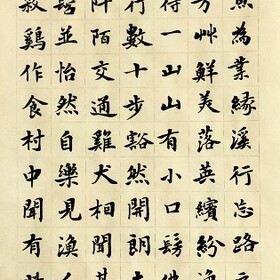 魚為業緣溪行忘路
艸鮮美落英繽紛
得一山山有小口髣
行數十步豁然開朗
阡陌交通雞犬相聞
髫並怡然自樂見漁
殺鷄作食村中聞有